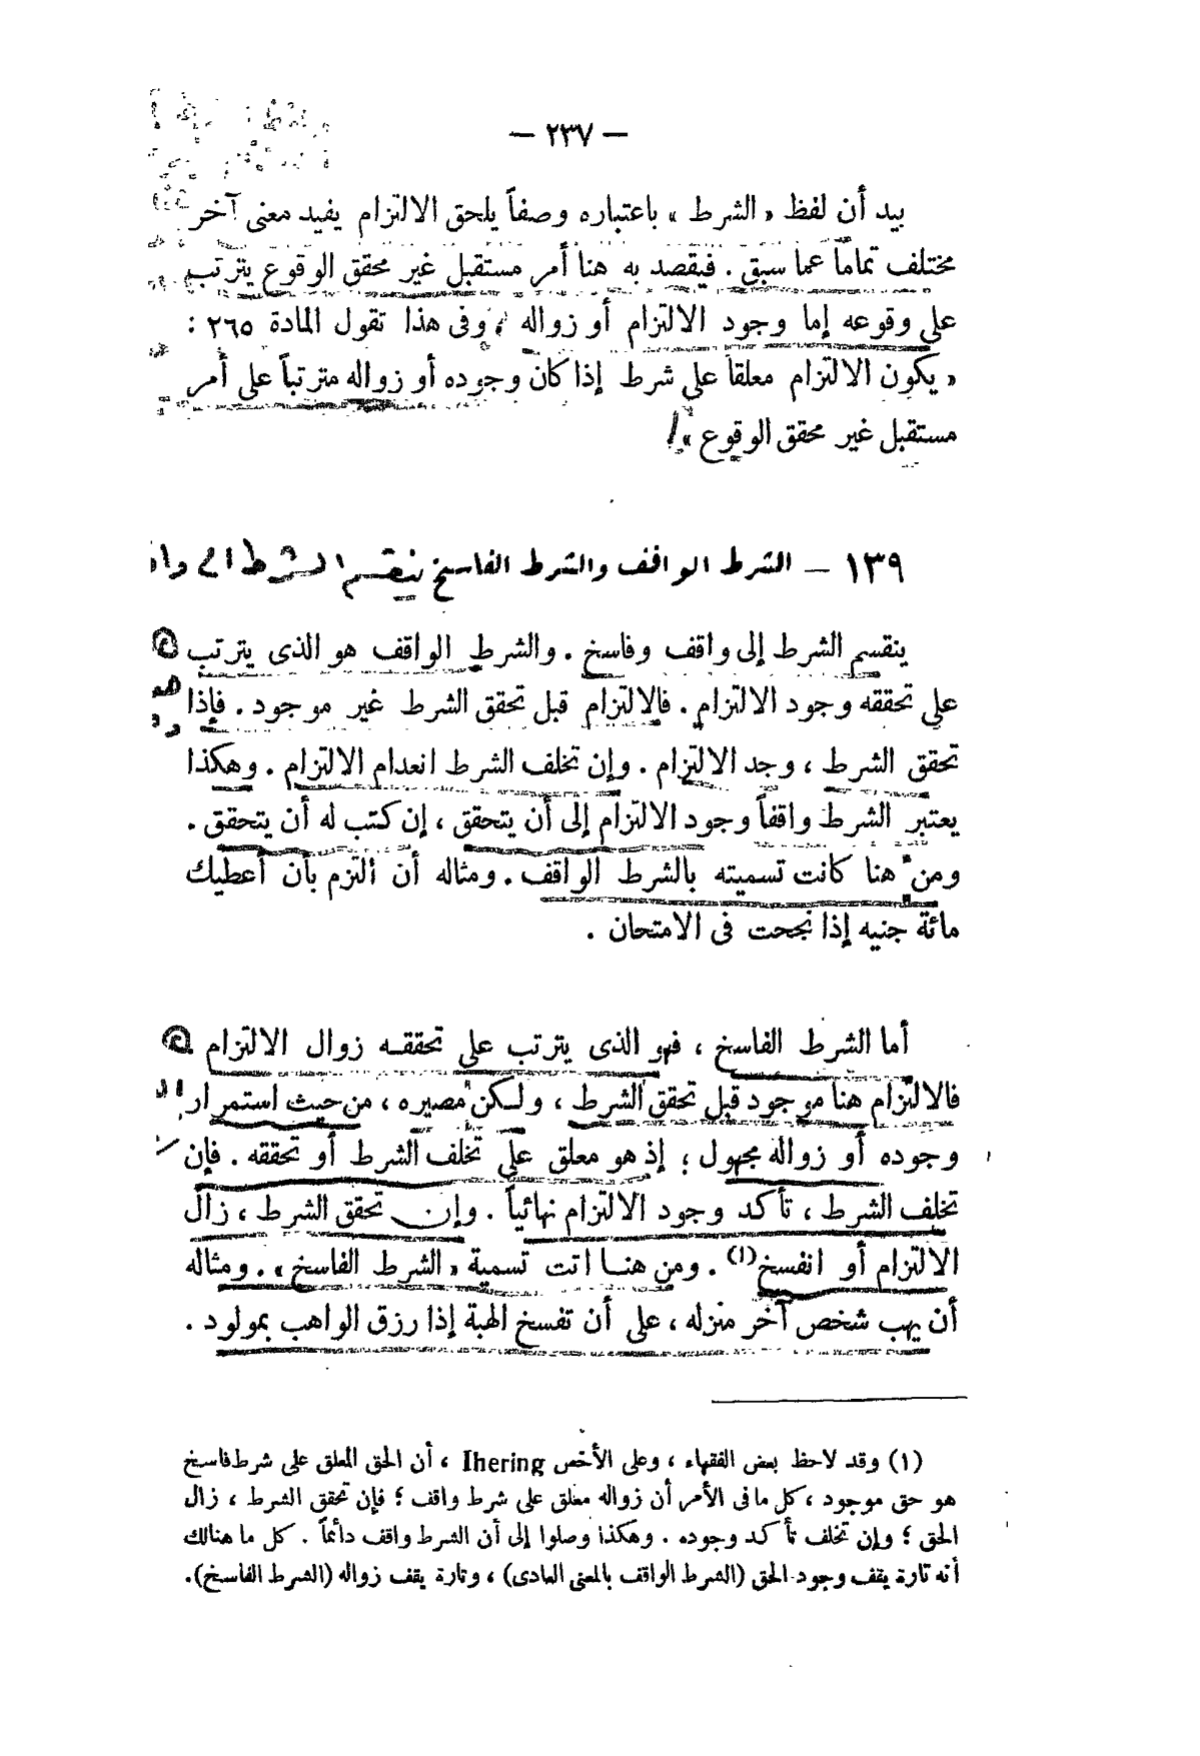 — ٢٣٧ —
بيد أن لفظ « الشرط » باعتباره وصفاً يلحق الالتزام يفيد معنى آخر
مختلف تماماً عما سبق . فيقصد به هنا أمر مستقبل غير محقق الوقوع يترتب
على وقوعه إما وجود الالتزام أو زواله ، وفى هذا تقول المادة ٢٦٥ :
« يكون الالتزام معلقاً على شرط إذا كان وجوده أو زواله مترتباً على أمر
مستقبل غير محقق الوقوع » .
١٣٩ — الشرط الواقف والشرط الفاسخ ينقسم الشرط الى
ينقسم الشرط إلى واقف وفاسخ . والشرط الواقف هو الذى يترتب
على تحققه وجود الالتزام . فالالتزام قبل تحقق الشرط غير موجود . فإذا
تحقق الشرط ، وجد الالتزام . وإن تخلف الشرط انعدام الالتزام . وهكذا
يعتبر الشرط واقفاً وجود الالتزام إلى أن يتحقق ، إن كتب له أن يتحقق .
ومن هنا كانت تسميته بالشرط الواقف . ومثاله أن ألتزم بأن أعطيك
مائة جنيه إذا نجحت فى الامتحان .
أما الشرط الفاسخ ، فهو الذى يترتب على تحققه زوال الالتزام
فالالتزام هنا موجود قبل تحقق الشرط ، ولكن مصيره ، من حيث استمرار
وجوده أو زواله مجهول ؛ إذ هو معلق على تخلف الشرط أو تحققه . فإن
تخلف الشرط ، تأكد وجود الالتزام نهائياً . وإن تحقق الشرط ، زال
الالتزام أو انفسخ(١) . ومن هنا اتت تسمية « الشرط الفاسخ » . ومثاله
أن يهب شخص آخر منزله ، على أن تفسخ الهبة إذا رزق الواهب بمولود .
(١) وقد لاحظ بعض الفقهاء ، وعلى الأخص Ihering ، أن الحق المعلق على شرط فاسخ
هو حق موجود ، كل ما فى الأمر أن زواله معلق على شرط واقف ؛ فإن تحقق الشرط ، زال
الحق ؛ وإن تخلف تأكد وجوده . وهكذا وصلوا إلى أن الشرط واقف دائماً . كل ما هنالك
أنه تارة يقف وجود الحق (الشرط الواقف بالمعنى العادى) ، وتارة يقف زواله (الشرط الفاسخ).